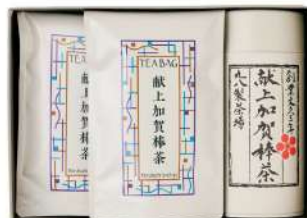 TEABAG
献上加賀棒茶
TEABAG
献上加賀棒茶
創業文久三年
献上加賀棒茶
丸八製茶場